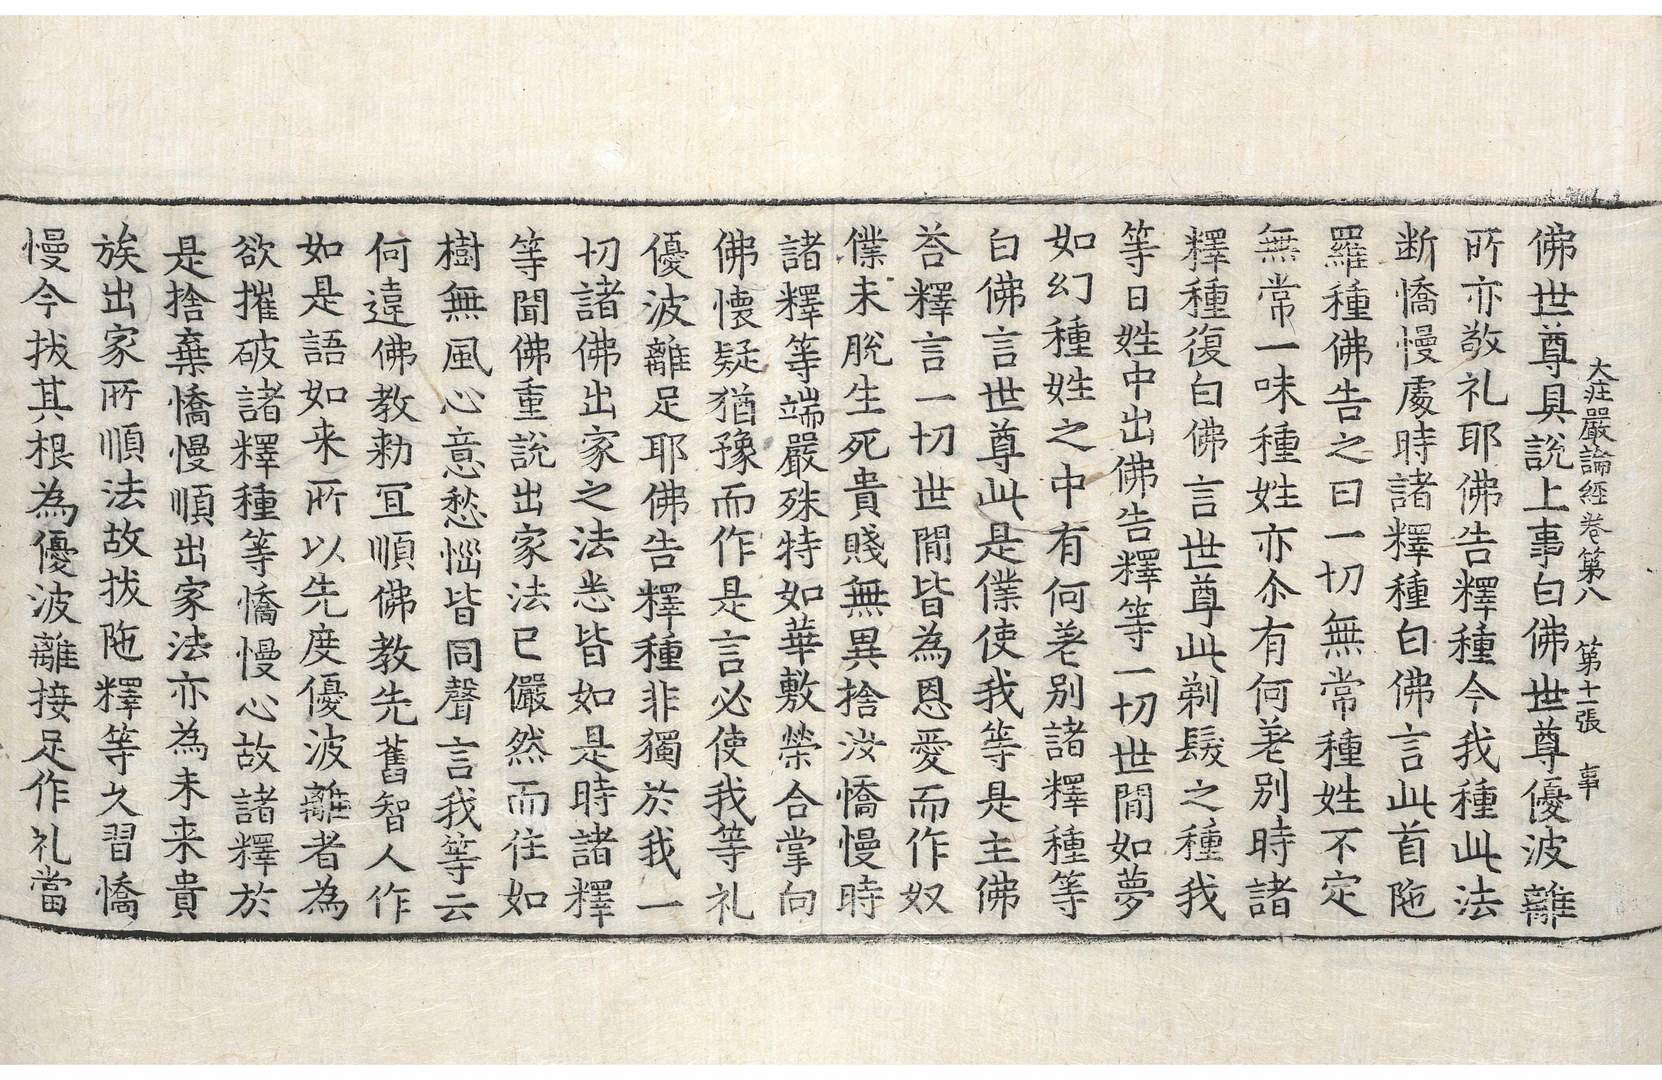 大莊嚴論經卷第八　第十二張　事
佛世尊具說上事白佛世尊優波離
所亦敬礼耶佛告釋種今我種此法
断憍慢處時諸釋種白佛言此首陁
羅種佛告之曰一切無常種姓不定
無常一味種姓亦尒有何差別時諸
釋種復白佛言世尊此剃髮之種我
等日姓中出佛告釋等一切世間如夢
如幻種姓之中有何差別諸釋種等
白佛言世尊此是僕使我等是主佛
荅釋言一切世間皆為恩愛而作奴
僕未脫生死貴賤無異捨汝憍慢時
諸釋等端嚴殊特如華敷榮合掌向
佛懷疑猶豫而作是言必使我等礼
優波離足耶佛告釋種非獨於我一
切諸佛出家之法悉皆如是時諸釋
等聞佛重說出家法已儼然而住如
樹無風心意愁惱皆同聲言我等云
何違佛教勑冝順佛教先舊智人作
如是語如来所以先度優波離者為
欲摧破諸釋種等憍慢心故諸釋於
是捨棄憍慢順出家法亦為未来貴
族出家所順法故拔陁釋等久習憍
慢今拔其根為優波離接足作礼當